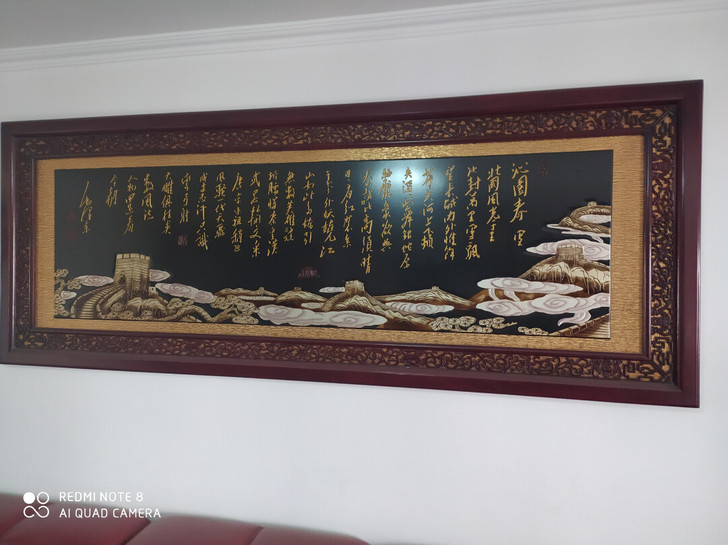 沁园春 雪
北国风光千
里冰封万里雪飘
望长城内外惟余
莽莽大河上下顿
失滔滔山舞银蛇原
驰蜡象欲与
天公试比高须晴
日看红装素
裹分外妖娆江
山如此多娇引
无数英雄竞
折腰惜秦皇汉
武略输文采
唐宗宋祖稍逊
风骚一代天骄
成吉思汗只识
弯弓射
大雕俱往矣
数风流
人物还看
今朝
毛泽东
REDMI NOTE 8
AI QUAD CAMERA